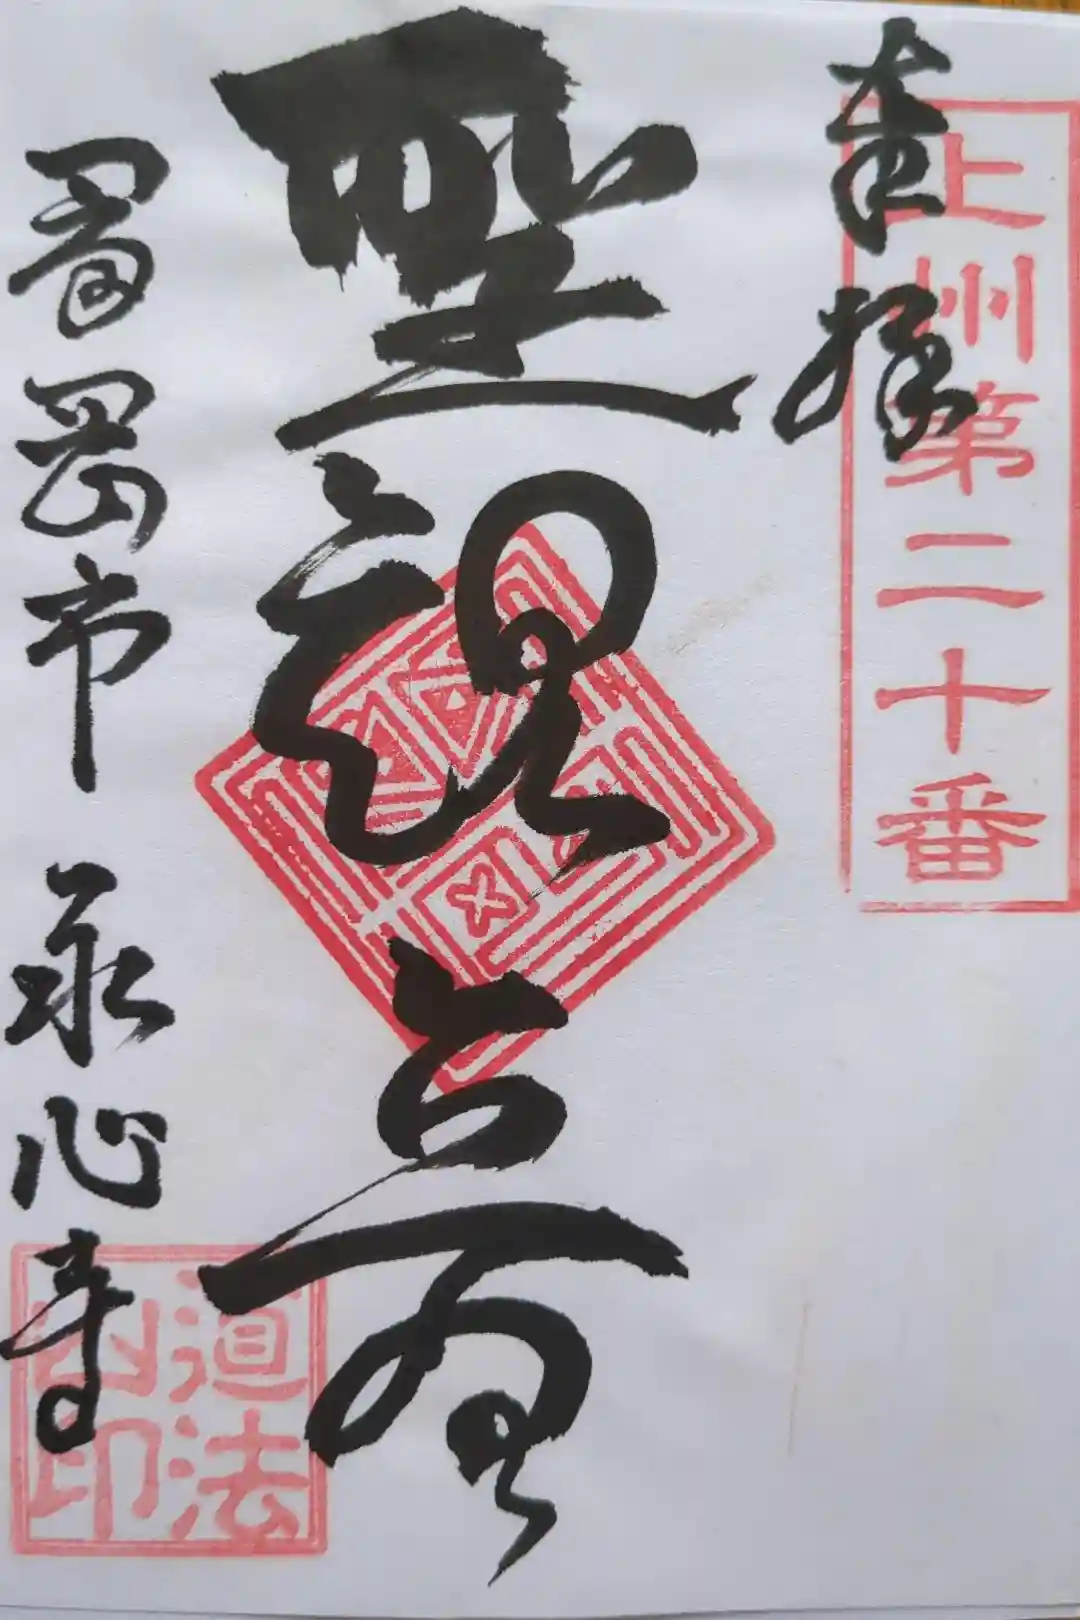 上州第二十番
奉拝
聖観音
富岡市 永心寺
道法
山印